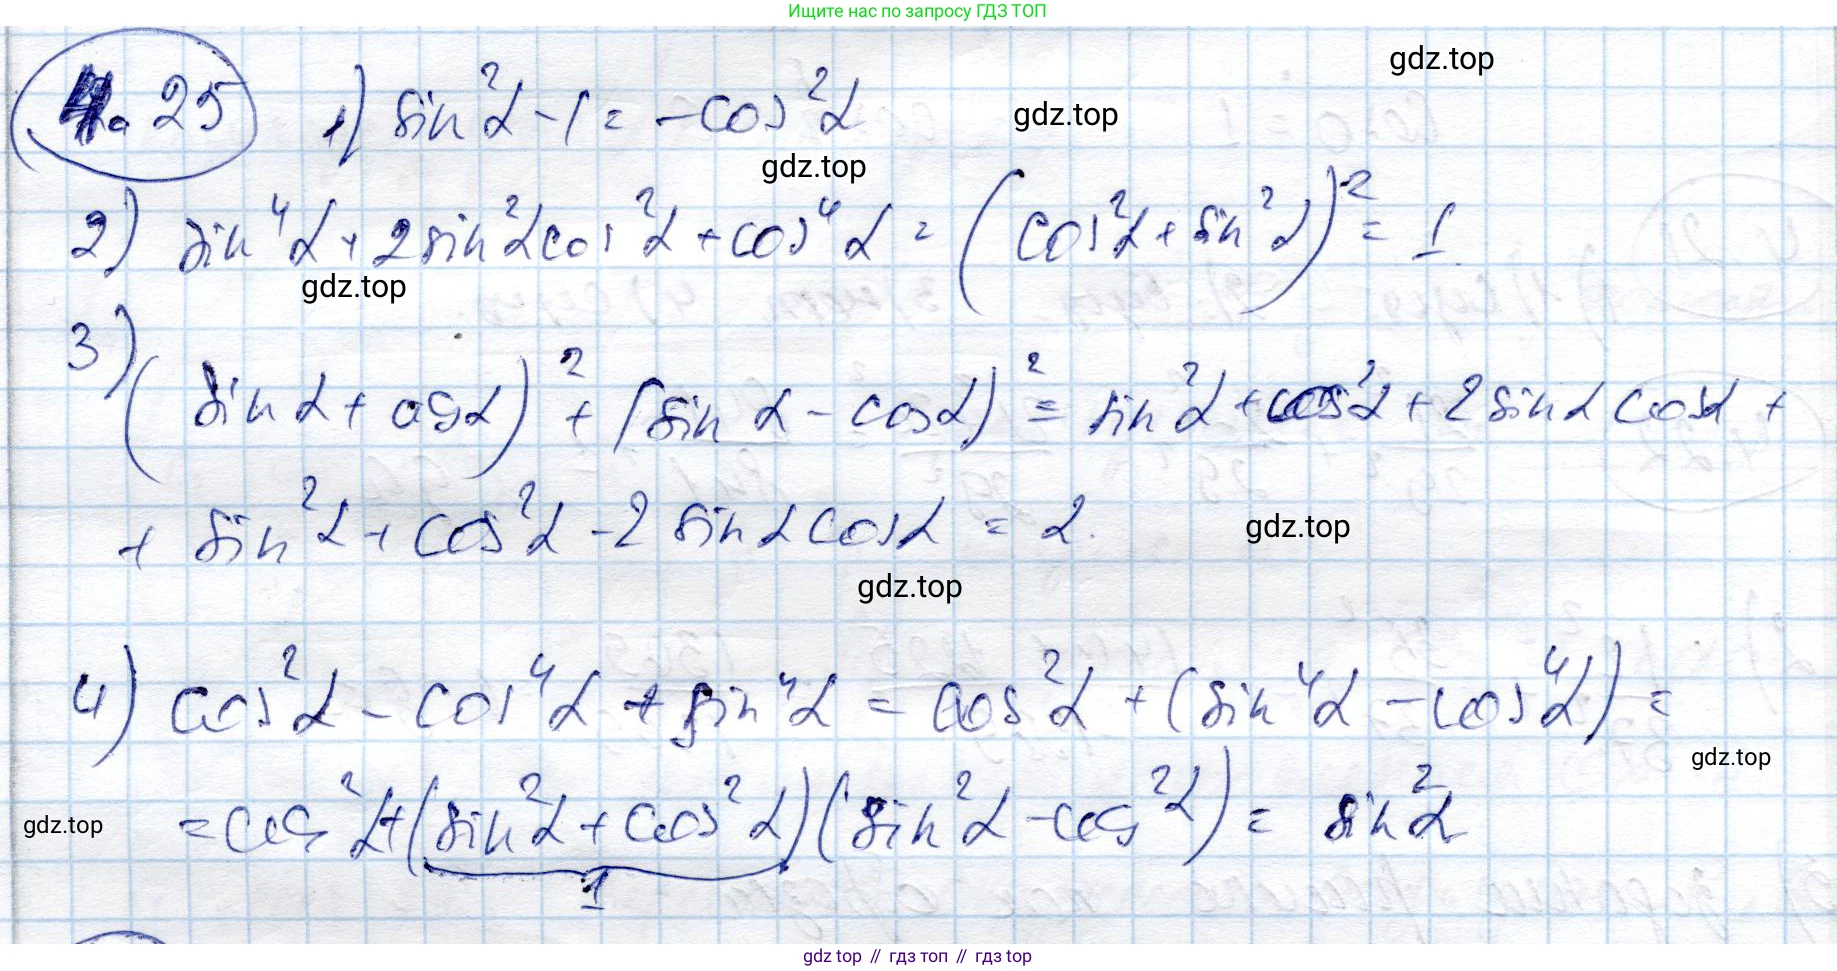 Ищите нас по запросу ГДЗ ТОП
gdz.top
4.25 1) sin²α - 1 = -cos²α
gdz.top
gdz.top
2) sin⁴α + 2sin²α cos²α + cos⁴α = (cos²α + sin²α)² = 1.
gdz.top
3) (sin α + cos α)² + (sin α - cos α)² = sin²α + cos²α + 2 sin α cos α +
+ sin²α + cos²α - 2 sin α cos α = 2.
gdz.top
gdz.top
4) cos²α - cos⁴α + sin⁴α = cos²α + (sin⁴α - cos⁴α) =
gdz.top
= cos²α + (sin²α + cos²α)(sin²α - cos²α) = sin²α
gdz.top
1
gdz top // гдз топ // гдз top